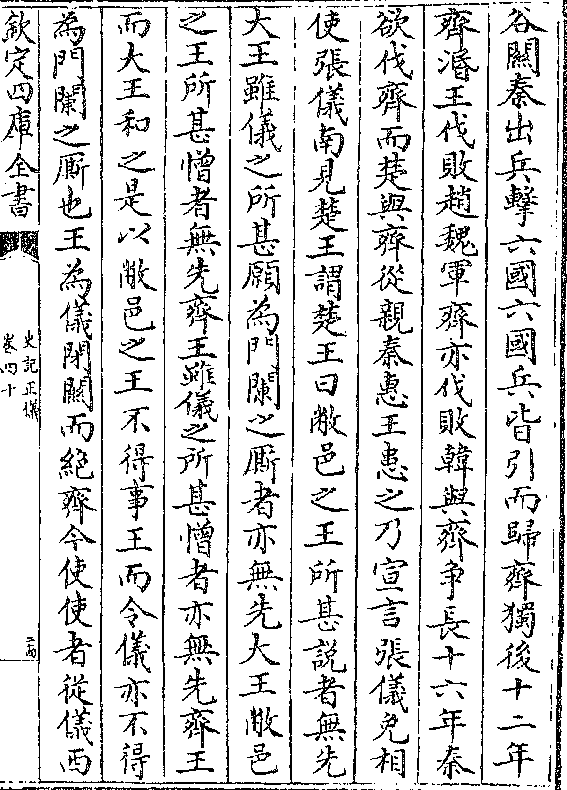 谷關秦出兵擊六國六國兵皆引而歸齊獨後十二年
齊湣王伐敗趙魏軍齊亦伐敗韓與齊爭長十六年秦
欲伐齊而楚與齊從親秦惠王患之乃宣言張儀免相
使張儀南見楚王謂楚王曰敝邑之王所甚說者無先
大王雖儀之所甚願為門闌之厮者亦無先大王敝邑
之王所甚憎者無先齊王雖儀之所甚憎者亦無先齊王
而大王和之是以敝邑之王不得事王而令儀亦不得
為門闌之厮也王為儀閉關而絕齊今使使者從儀西
欽定四庫全書
史記正義
卷四十
二四